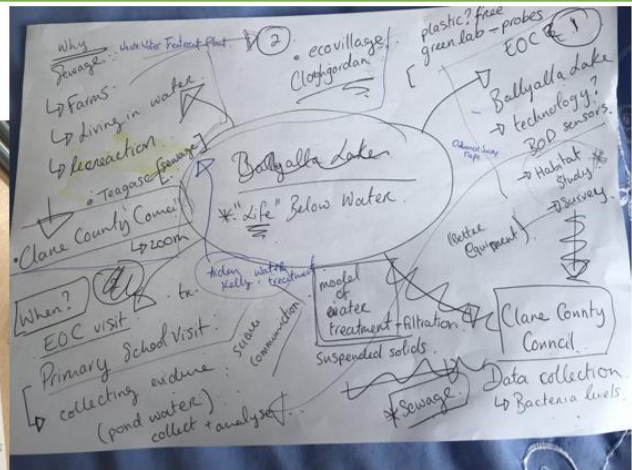 Why
Sewage: Waste Water Treatment Plant
↳ Farms.
↳ Living in water
↳ Recreaction
• Teagasc [sewage]
• Clare County Council
↳ zoom
When?
EOC visit
Primary School Visit.
↳ collecting evidence
(pond water)
collect + analyse
②
• ecovillage
Cloghjordan
plastic? free
green lab - probes
EOC &
①
Ballyalla Lake
→ technology?
BOD sensors.
→ Habitat
Study *
→ Survey
(Better
Equipment)
Ballyalla Lake
* "Life" Below Water.
water
Kelly. treatment
tx.
science
communication
model
of
water
treatment - filtration.
suspended solids.
* Sewage
Clare County
Council
Data collection
↳ Bacteria levels.